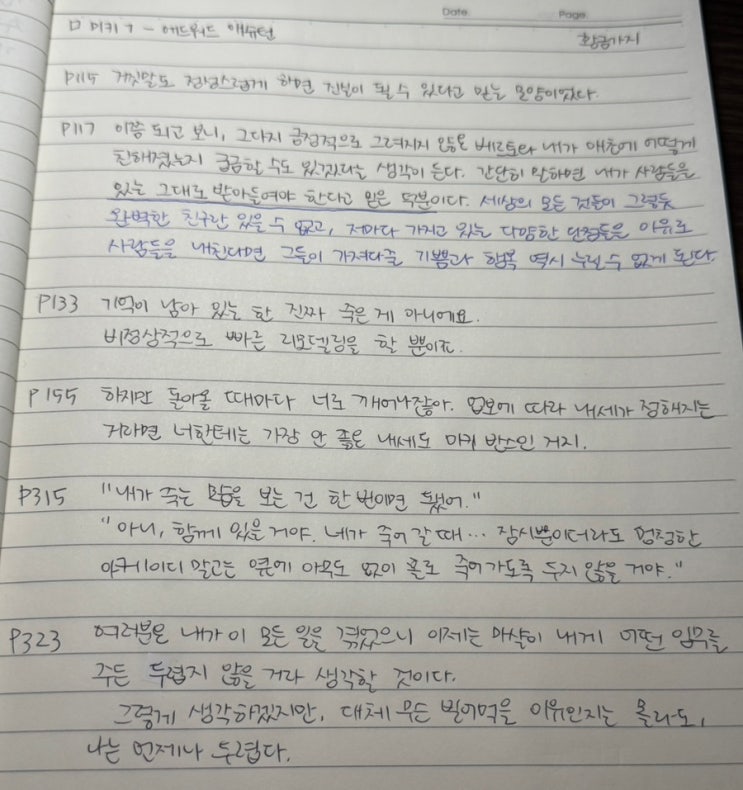 Date Page
ㅁ 미키 7 - 에드워드 애슈턴 황금가지
P115 거짓말도 정성스럽게 하면 진실이 될 수 있다고 믿는 모양이었다.
P117 이쯤 되고 보니, 그다지 긍정적으로 그려지지 않은 베르토와 내가 애초에 어떻게
친해졌는지 궁금할 수도 있겠다라는 생각이 든다. 간단히 말하면 내가 사람들을
있는 그대로 받아들여야 한다고 믿은 덕분이다. 세상의 모든 것들이 그렇듯
완벽한 친구란 있을 수 없고, 저마다 가지고 있는 다양한 단점들을 이유로
사람들을 내친다면 그들이 가져다줄 기쁨과 행복 역시 누릴 수 없게 된다.
P133 기억이 남아 있는 한 진짜 죽은 게 아니에요.
비정상적으로 빠른 리모델링을 할 뿐이죠.
P155 하지만 돌아올 때마다 너로 깨어나잖아. 업보에 따라 내세가 정해지는
거라면 너한테는 가장 안 좋은 내세도 미키 반스인 거지.
P315 "내가 죽는 모습을 보는 건 한 번이면 됐어."
"아니, 함께 있을 거야. 네가 죽어 갈 때... 잠시뿐이더라도 멍청한
아케이디 말고는 옆에 아무도 없이 홀로 죽어가도록 두지 않을 거야."
P323 여러분은 내가 이 모든 일을 겪었으니 이제는 마샬이 내게 어떤 임무를
주든 두렵지 않을 거라 생각할 것이다.
그렇게 생각하겠지만, 대체 무슨 빌어먹을 이유인지는 몰라도,
나는 언제나 두렵다.